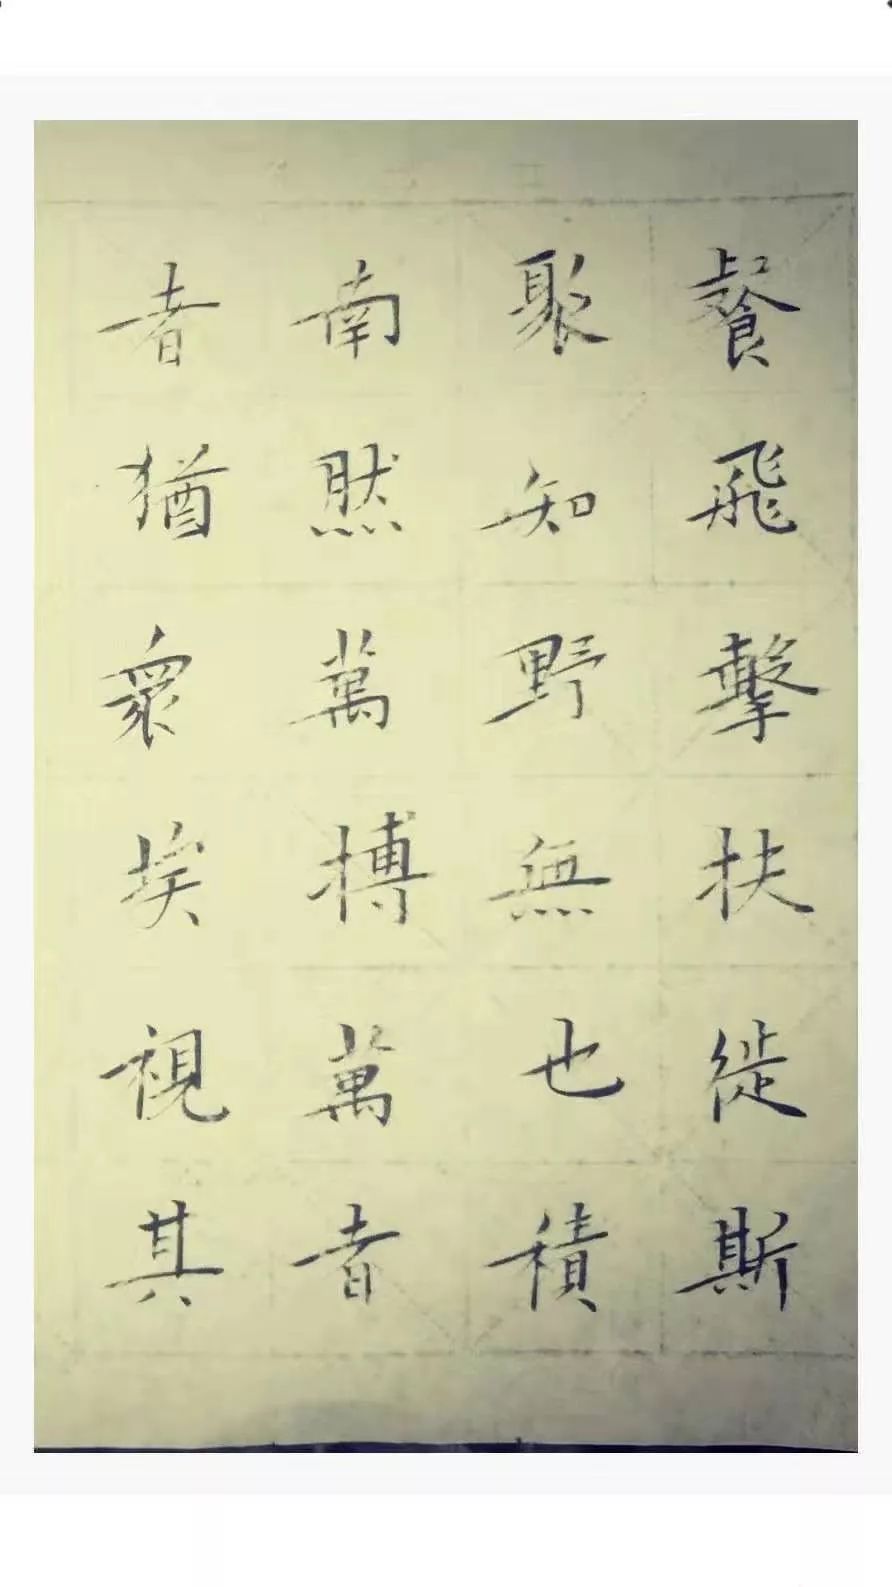 餐飛擊扶徙斯
聚知野無也積
南然萬搏萬者
者猶眾埃視其